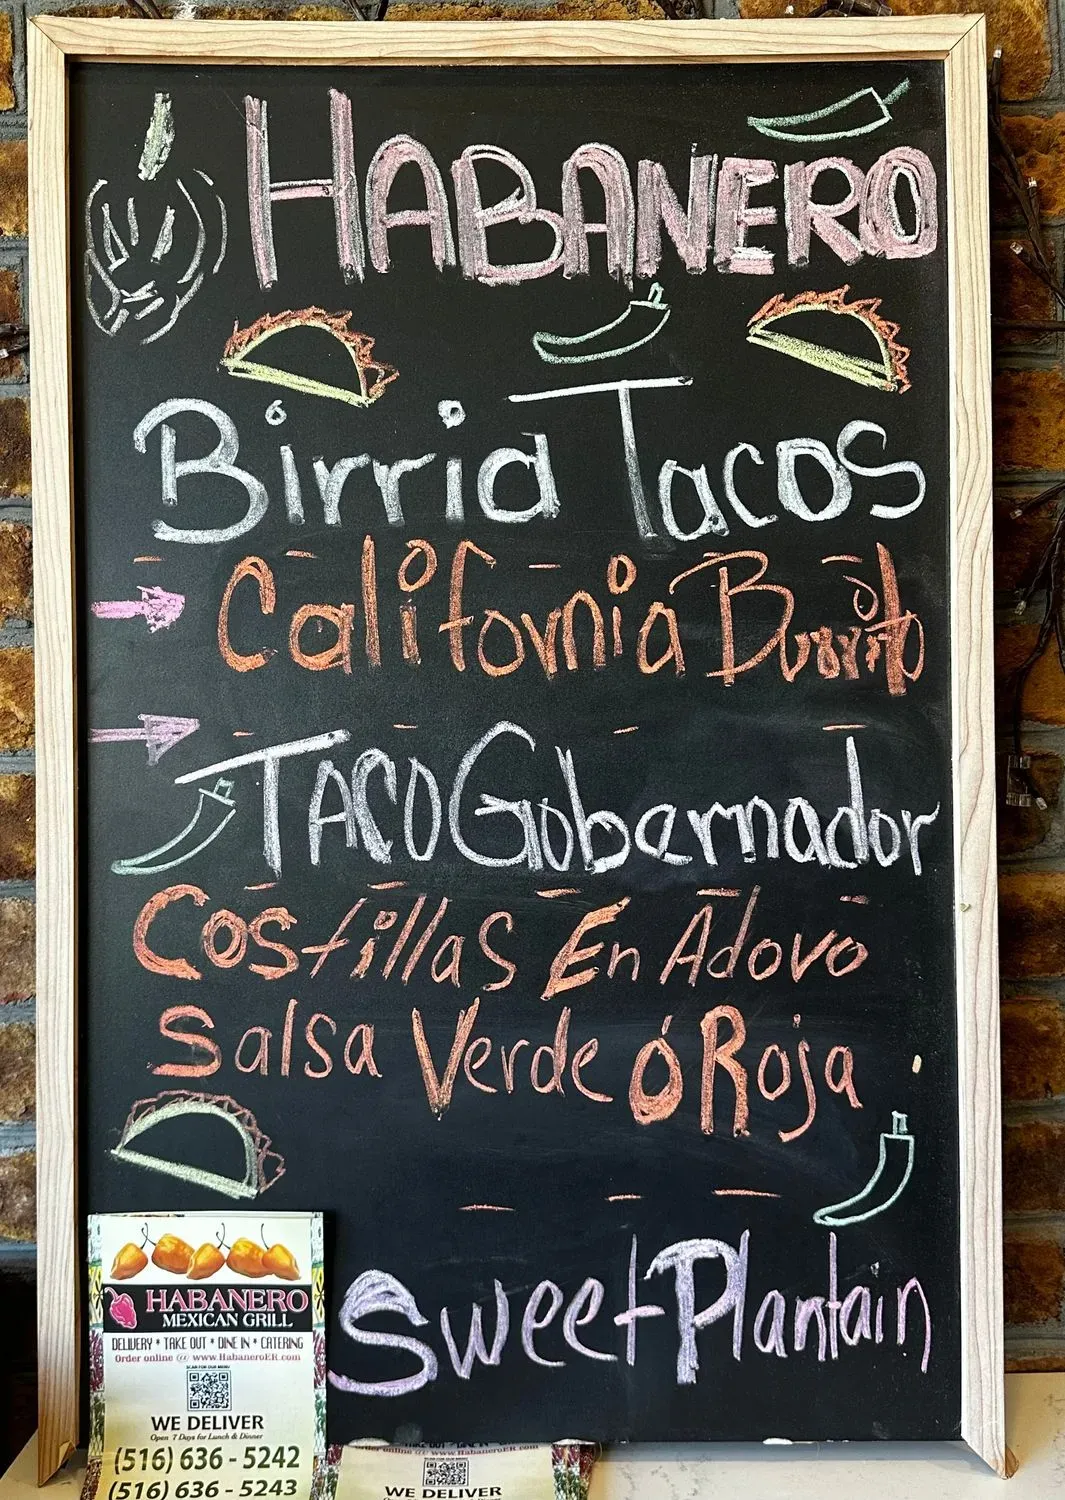 HABANERO
Birria Tacos
California Burrito
TACO Gobernador
Costillas En Adovo
Salsa Verde ó Roja
Sweet Plantain
HABANERO
MEXICAN GRILL
DELIVERY * TAKE OUT * DINE IN * CATERING
Order online @ www.HabaneroER.com
SCAN FOR OUR MENU
WE DELIVER
Open 7 Days for Lunch & Dinner
(516) 636 - 5242
(516) 636 - 5243
TAKE OUT * DINE IN
order online @ www.HabaneroER.com
WE DELIVER